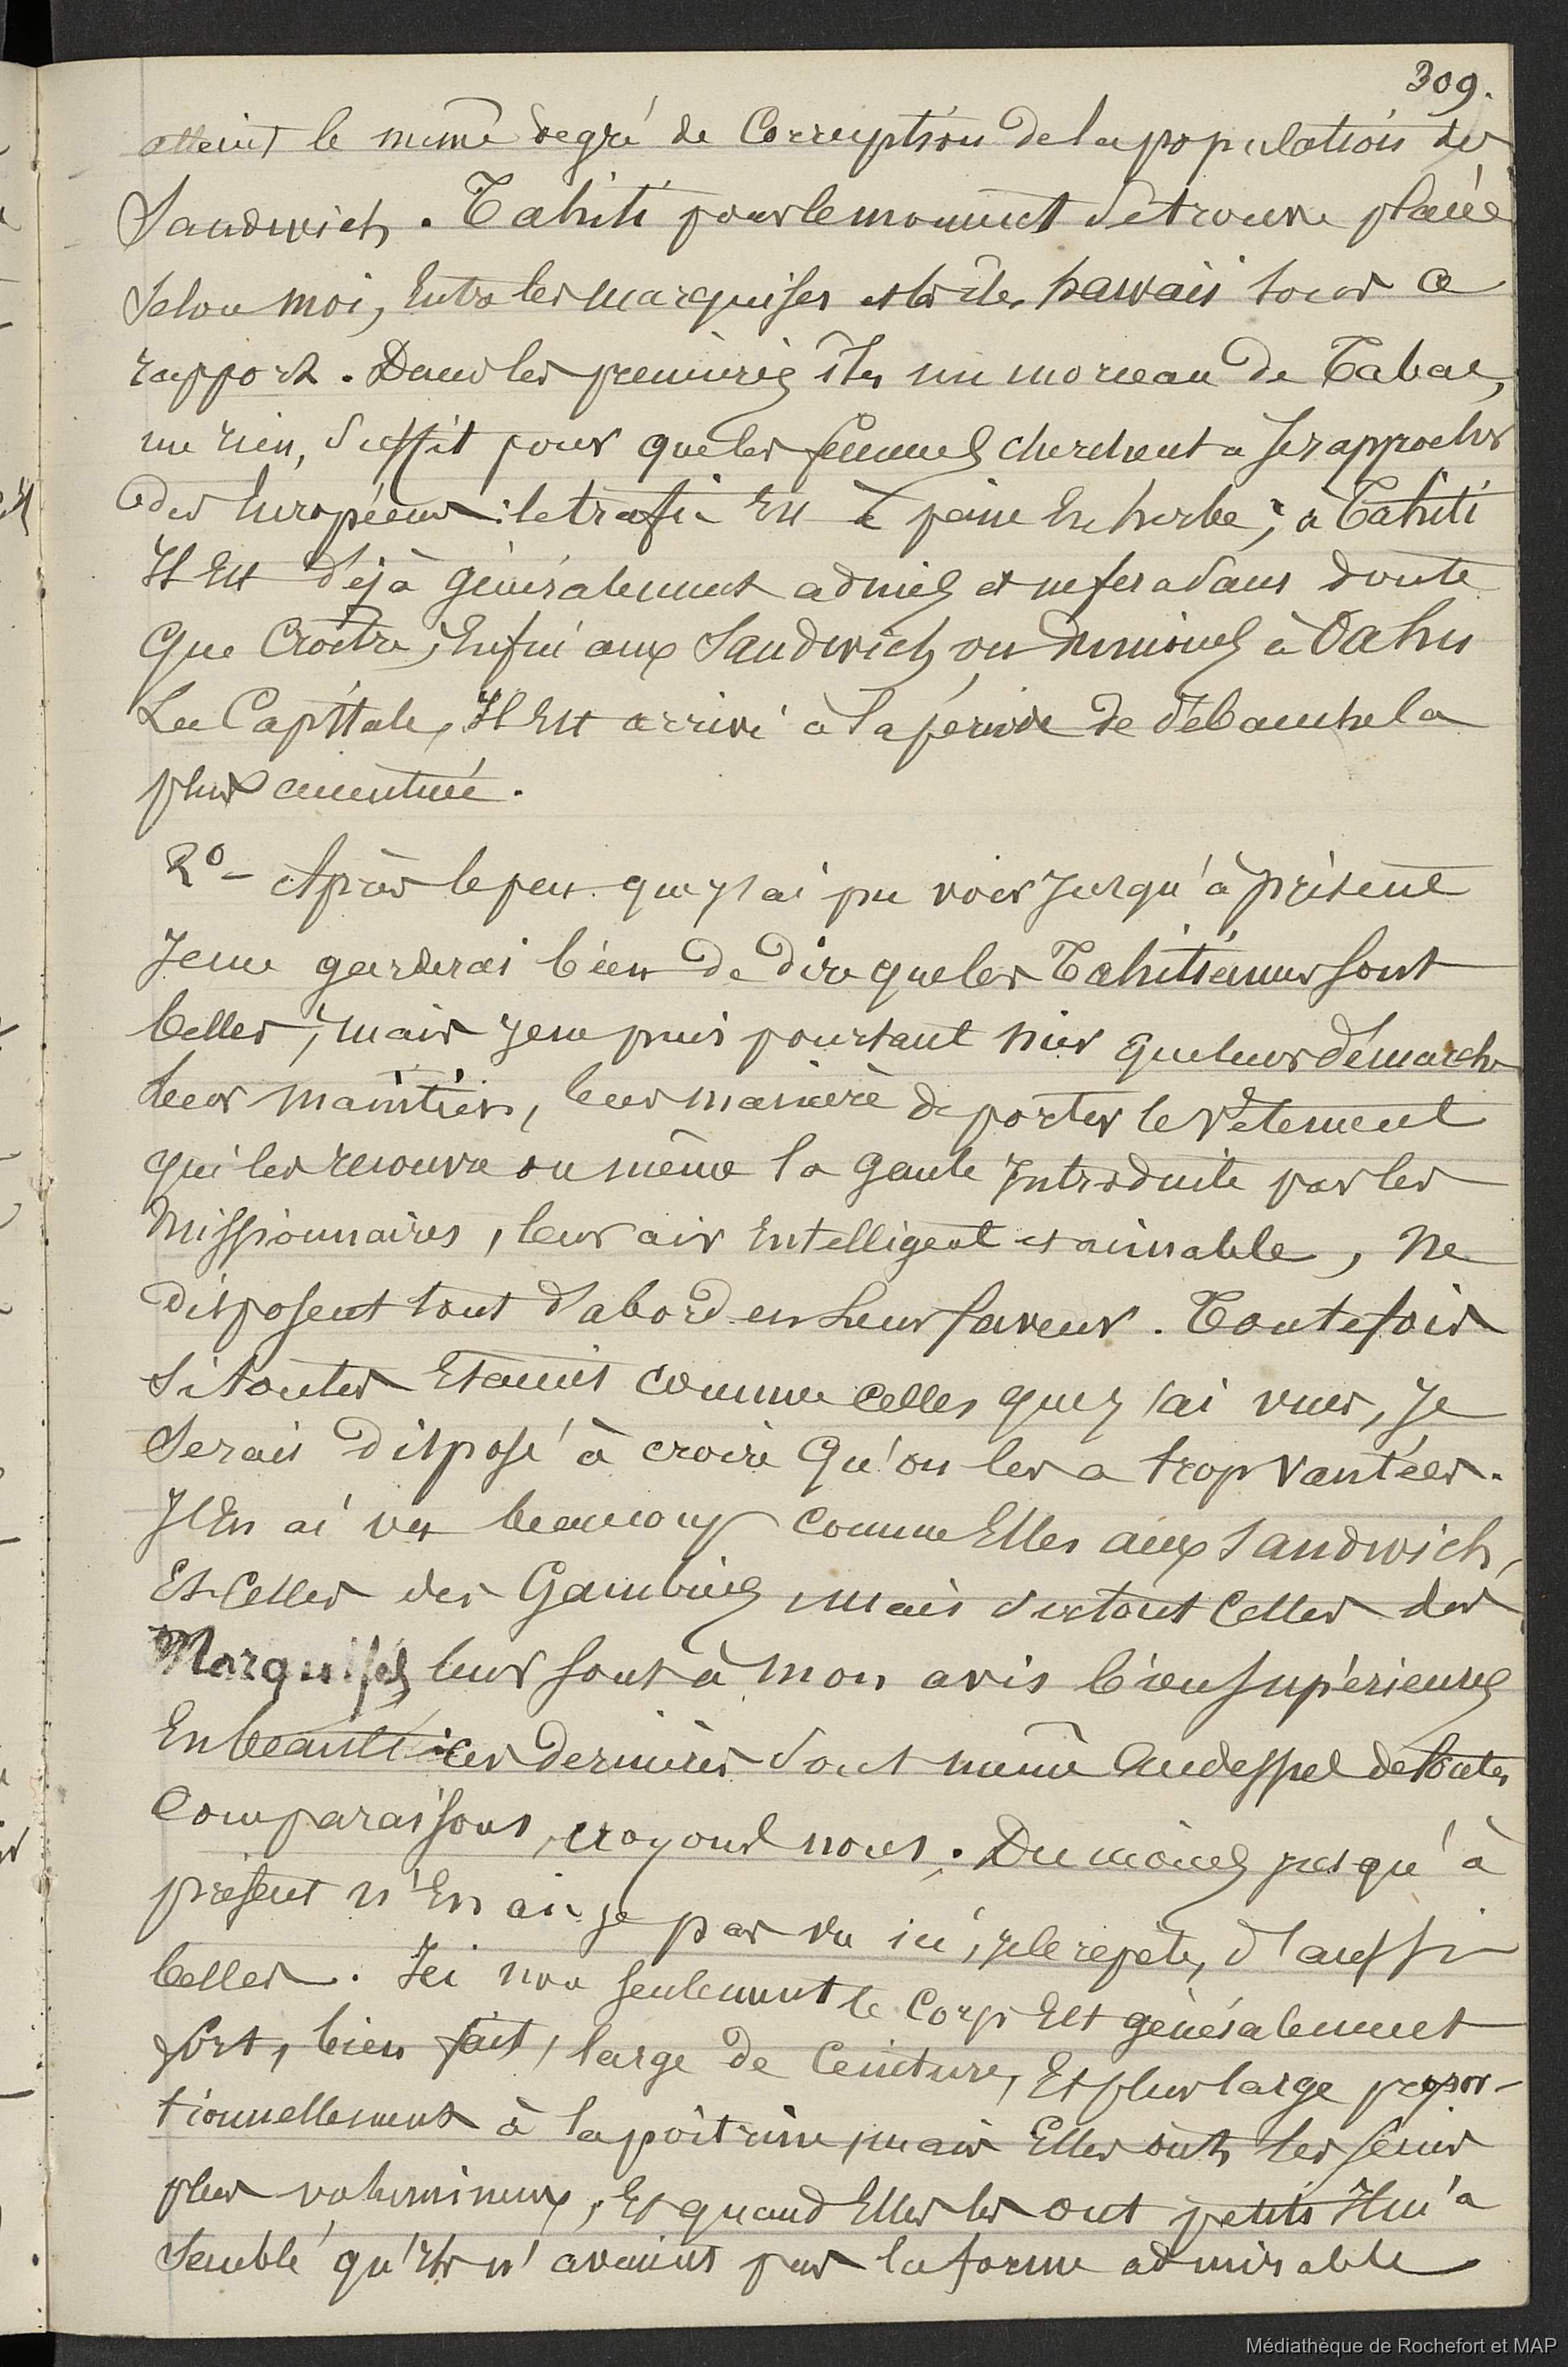 309.
atteint le même degré de Corruption de la population des
Sandwich. Tahiti pour le moment se trouve placée
Selon moi, Entre les Marquises et les îles hawaii sous ce
rapport. Dans les premières îles un morceau de Tabac,
un rien, Suffit pour que les femmes cherchent à se rapprocher
des Européens : le trafic Est à peine En herbe ; à Tahiti
Il Est déjà généralement admis et ne fera sans doute
Que Croître ; Enfin aux Sandwich, ou du moins à Oahu
La Capitale, Il Est arrivé à la période de débauche la
plus accentuée.
2º - Après le peu que j'ai pu voir Jusqu'à présent
Je me garderai bien de dire que les Tahitiennes sont
belles ; mais je ne puis pourtant nier que leur démarche
leur maintien, leur manière de porter le vêtement
qui les recouvre ou même la gaule Introduite par les
Missionnaires, leur air Intelligent et aimable, ne
disposent tout d'abord en leur faveur. Toutefois
si toutes Etaient comme celles que j'ai vues, Je
Serais disposé à croire Qu'on les a trop vantées.
J'En ai vu beaucoup comme Elles aux Sandwich,
Et Celles des Gambiers mais surtout Celles des
Marquises leur sont à mon avis bien supérieures
En beauté : ces dernières sont même Au dessus de toutes
Comparaisons, croyons nous. Du moins jusqu'à
présent n'En ai-je pas vu ici, je le répète, d'aussi
belles. Ici non seulement le Corps Est généralement
fort, bien fait, large de Ceinture, Et plus large propor-
tionnellement à la poitrine, mais Elles ont les seins
plus volumineux, Et quand Elles les ont petits Il m'a
Semblé qu'ils n'avaient pas la forme admirable
Médiathèque de Rochefort et MAP